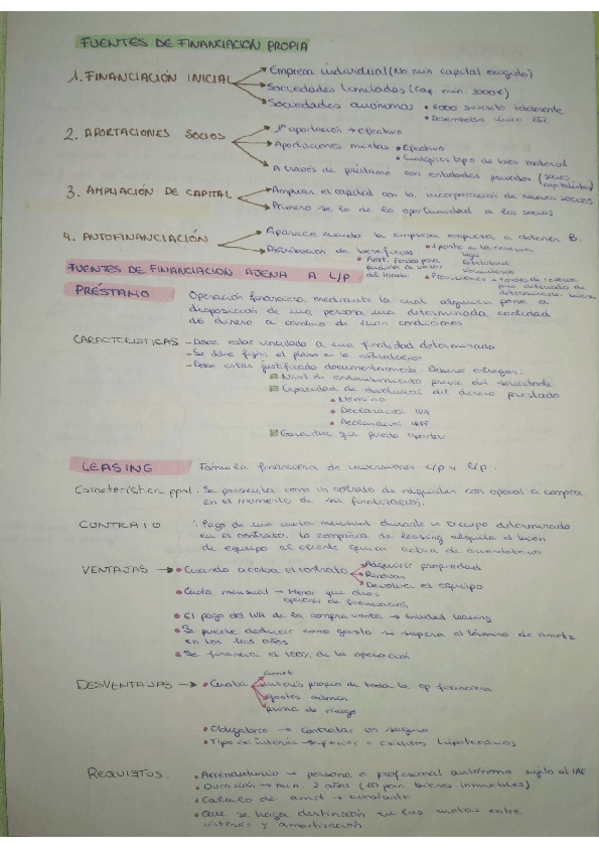 FUENTES DE FINANCIACIÓN PROPIA
1. FINANCIACIÓN INICIAL
Empresa individual (No mín capital exigido)
Sociedades limitadas (Cap. mín. 3000€)
Sociedades autónomas
Desembolso
2. APORTACIONES SOCIOS
1ª aportación → Efectivo
Aportaciones mixtas • Efectivo
• Cualquier tipo de bien material
A través de préstamo con entidades privadas (socios capitalistas)
3. AMPLIACIÓN DE CAPITAL
Ampliar el capital con la incorporación de nuevos socios
Primero se le da la oportunidad a los socios
4. AUTOFINANCIACIÓN
Aparece cuando la empresa empieza a obtener B.
Distribución de beneficios
FUENTES DE FINANCIACION AJENA A L/P
PRÉSTAMO
Operación financiera mediante la cual alguien pone a
disposición de una persona una determinada cantidad
de dinero a cambio de unas condiciones
CARACTERISTICAS
- Debe estar vinculado a una finalidad determinada
- Se debe fijar el plazo en la contratación
- Debe estar justificado documentalmente. Deberá entregar:
Nivel de endeudamiento previo del solicitante
Capacidad de devolución del dinero prestado
• Nómina
• Declaración IVA
• Declaración IRPF
Garantías que puede aportar
LEASING
Fórmula financiera de inversiones c/p y l/p.
Característica ppal.
Se presenta como un contrato de alquiler con opción a compra
en el momento de su finalización.
CONTRATO
: Pago de una cuota mensual durante un tiempo determinado
en el contrato. La compañía de leasing alquila el bien
de equipo al cliente quien actua de arrendatario
VENTAJAS →
• Cuando acaba el contrato
Adquirir propiedad
Renovar
Devolver el equipo
• Cuota mensual → Menor que otras
opciones de financiación
• El pago del IVA de la compra venta → Entidad leasing
• Se puede deducir como gasto si supera el término de
en los años
• Se financia el 100% de la operación
DESVENTAJAS →
• Cuota
amrt
interés propio de toda la op financiera
gastos admin
prima de riesgo
• Obligatorio → Contratar un seguro
• Tipo de interés → superior a créditos hipotecarios
REQUISITOS.
• Arrendatario → persona o profesional autónomo sujeto al IAE
• Duración → mín. 2 años (10 para bienes inmuebles)
• Calculo de amrt → constante
• Que se haga distinción en las cuotas entre
intereses y amortización